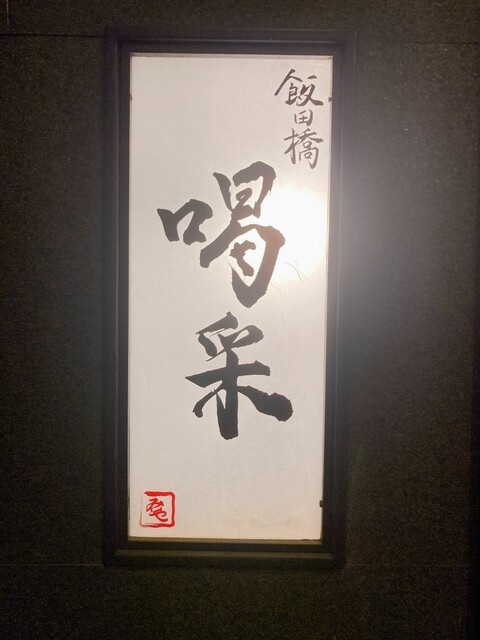 飯田橋
喝采